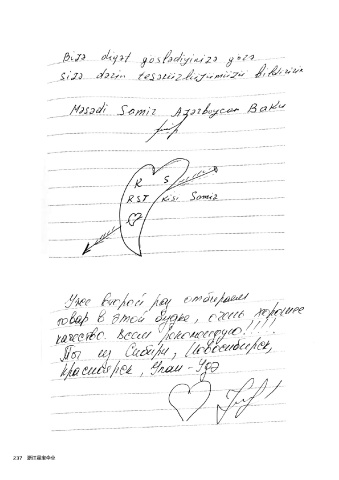 Bizə diqət göstədiyinizə görə
sizə dərin təşəkürlüyümüzü bildiririk
Məşədi Samir Azərbaycan Baku
R S
RST Kisi Samir
Уже второй раз отбираем
товар в этой будке, очень хорошее
качество. Всем рекомендую!!!!
Мы из Сибири, Новосибирск,
Красноярск, Улан-Удэ
237 浙江蓝宝伞业